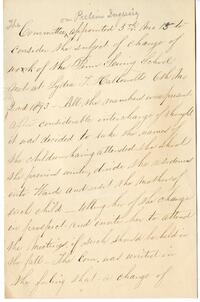 The Committee appointed 5th mo 15 to
consider the subject of change of
work of the Sewing School
met at Lydia T. Hallowells 6th mo
2nd 1893 - All the members were present
After considerable interchange of thought
it was decided to take the names of
the children having attended the school
the previous winter, divide the residences
into Wards and visit the mothers of
each child - telling her of the change
in prospect and invite her to attend
the meetings if such should be held in
the fall - The Com. was united in
the feeling that a change of